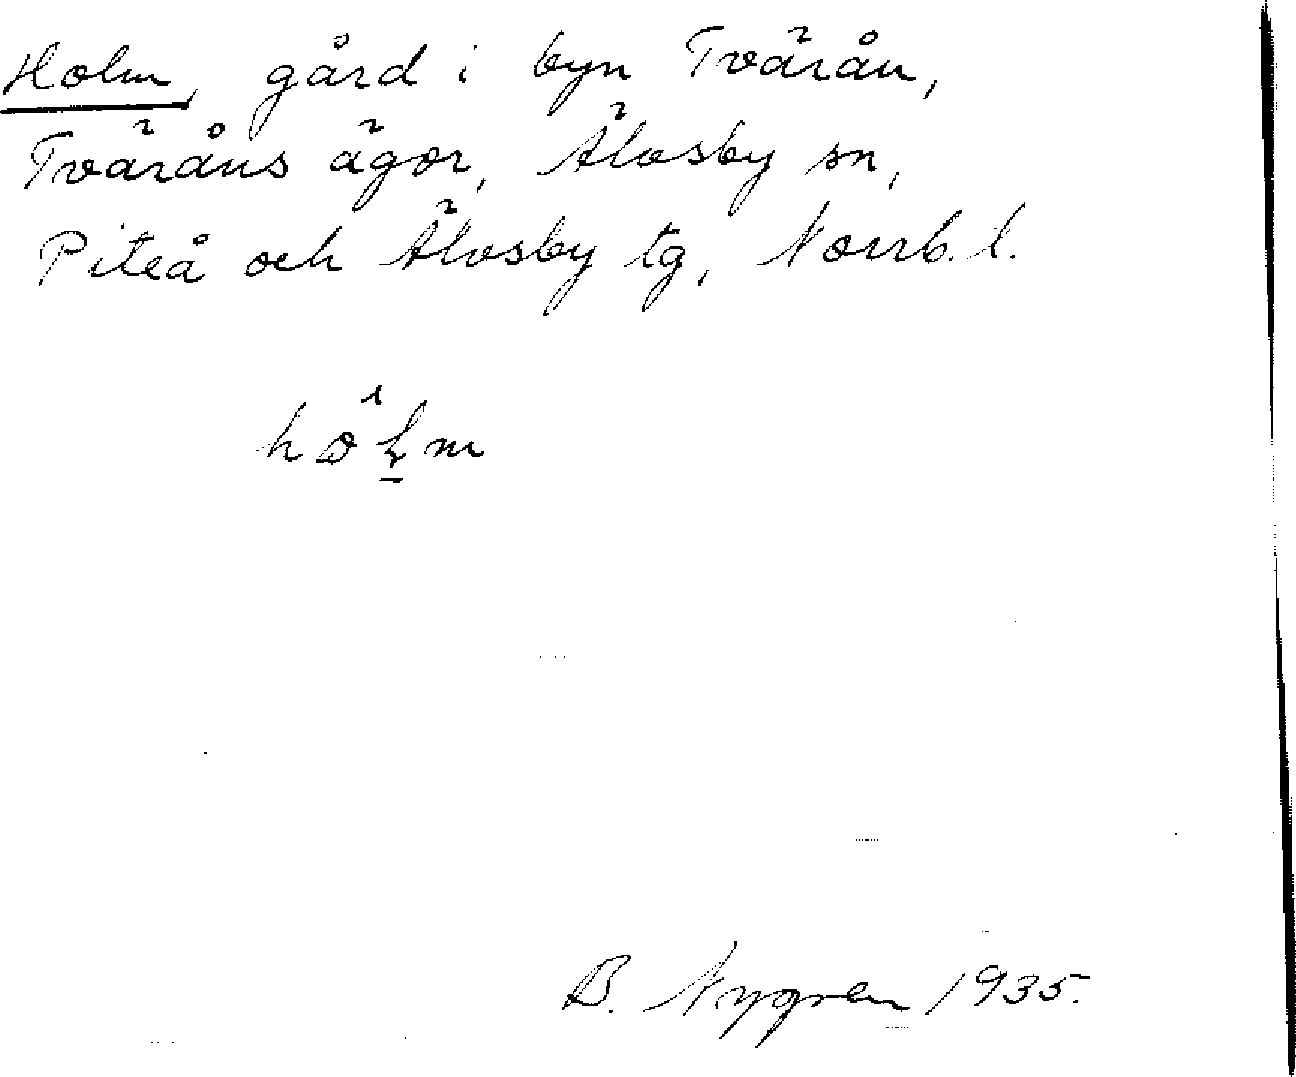 Holm, gård i byn Tvärån,
Tväråns ägor, Älvsby sn,
Piteå och Älvsby tg, Norrb. l.
B. Nygren 1935.